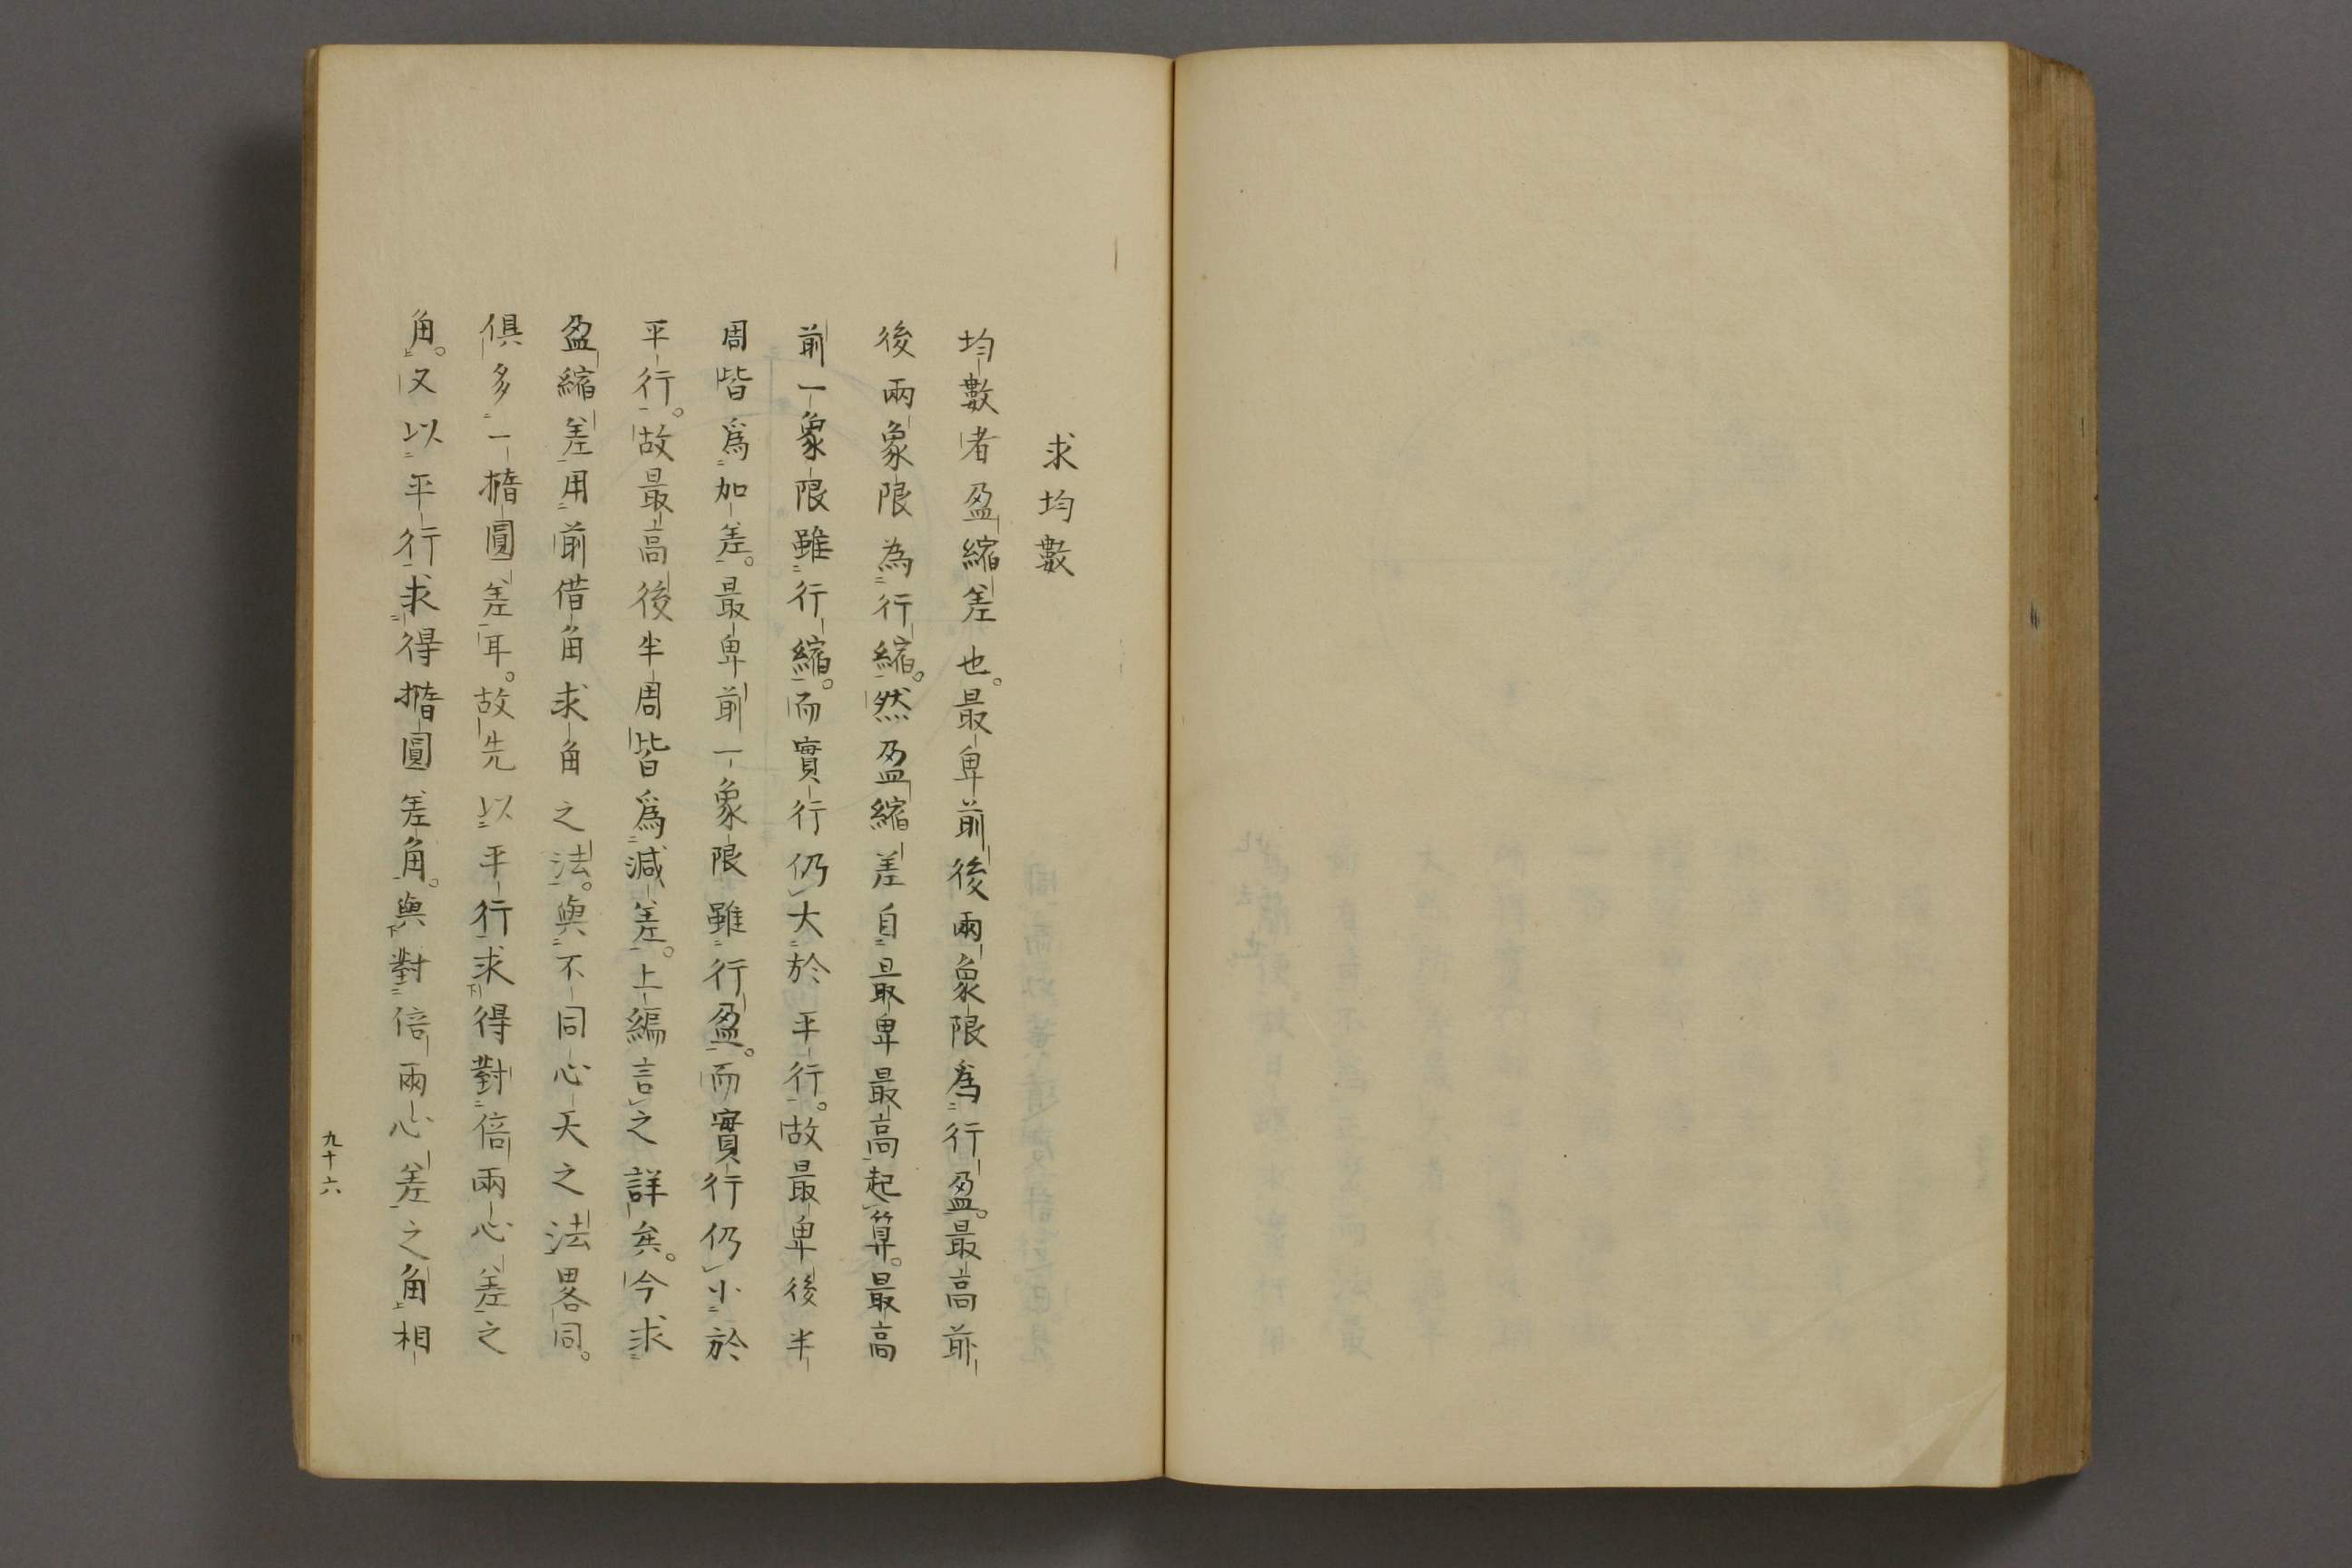 求均數
均數者盈縮差也。最卑前後兩象限為行盈。最高前
後兩象限為行縮。然盈縮差自最卑最高起算。最高
前一象限雖行縮。而實行仍大於平行。故最卑後半
周皆爲加差。最卑前一象限雖行盈。而實行仍小於
平行。故最高後半周皆爲減差。上編言之詳矣。今求
盈縮差用前借角求角之法。與不同心天之法畧同。
俱多一撱圓差耳。故先以平行求得對倍兩心差之
角。又以平行求得撱圓差角。與對倍兩心差之角相
九十六